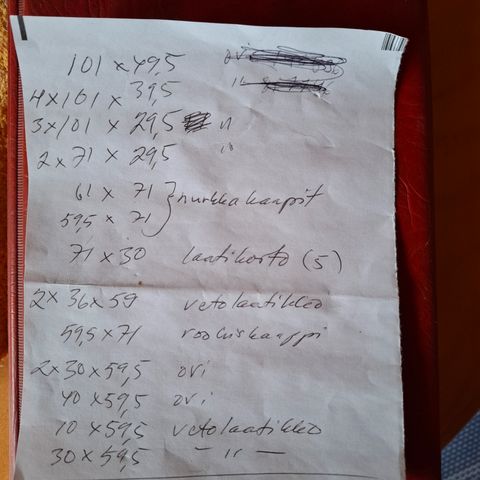 101 x 49,5 ovi
4 x 101 x 39,5 "
3 x 101 x 29,5 "
2 x 71 x 29,5 "
61 x 71 } nurkkakaapit
59,5 x 71
71 x 30 laatikosto (5)
2 x 36 x 59 vetolaatikko
59,5 x 71 roskiskaappi
2 x 30 x 59,5 ovi
40 x 59,5 ovi
10 x 59,5 vetolaatikko
30 x 59,5 - " -